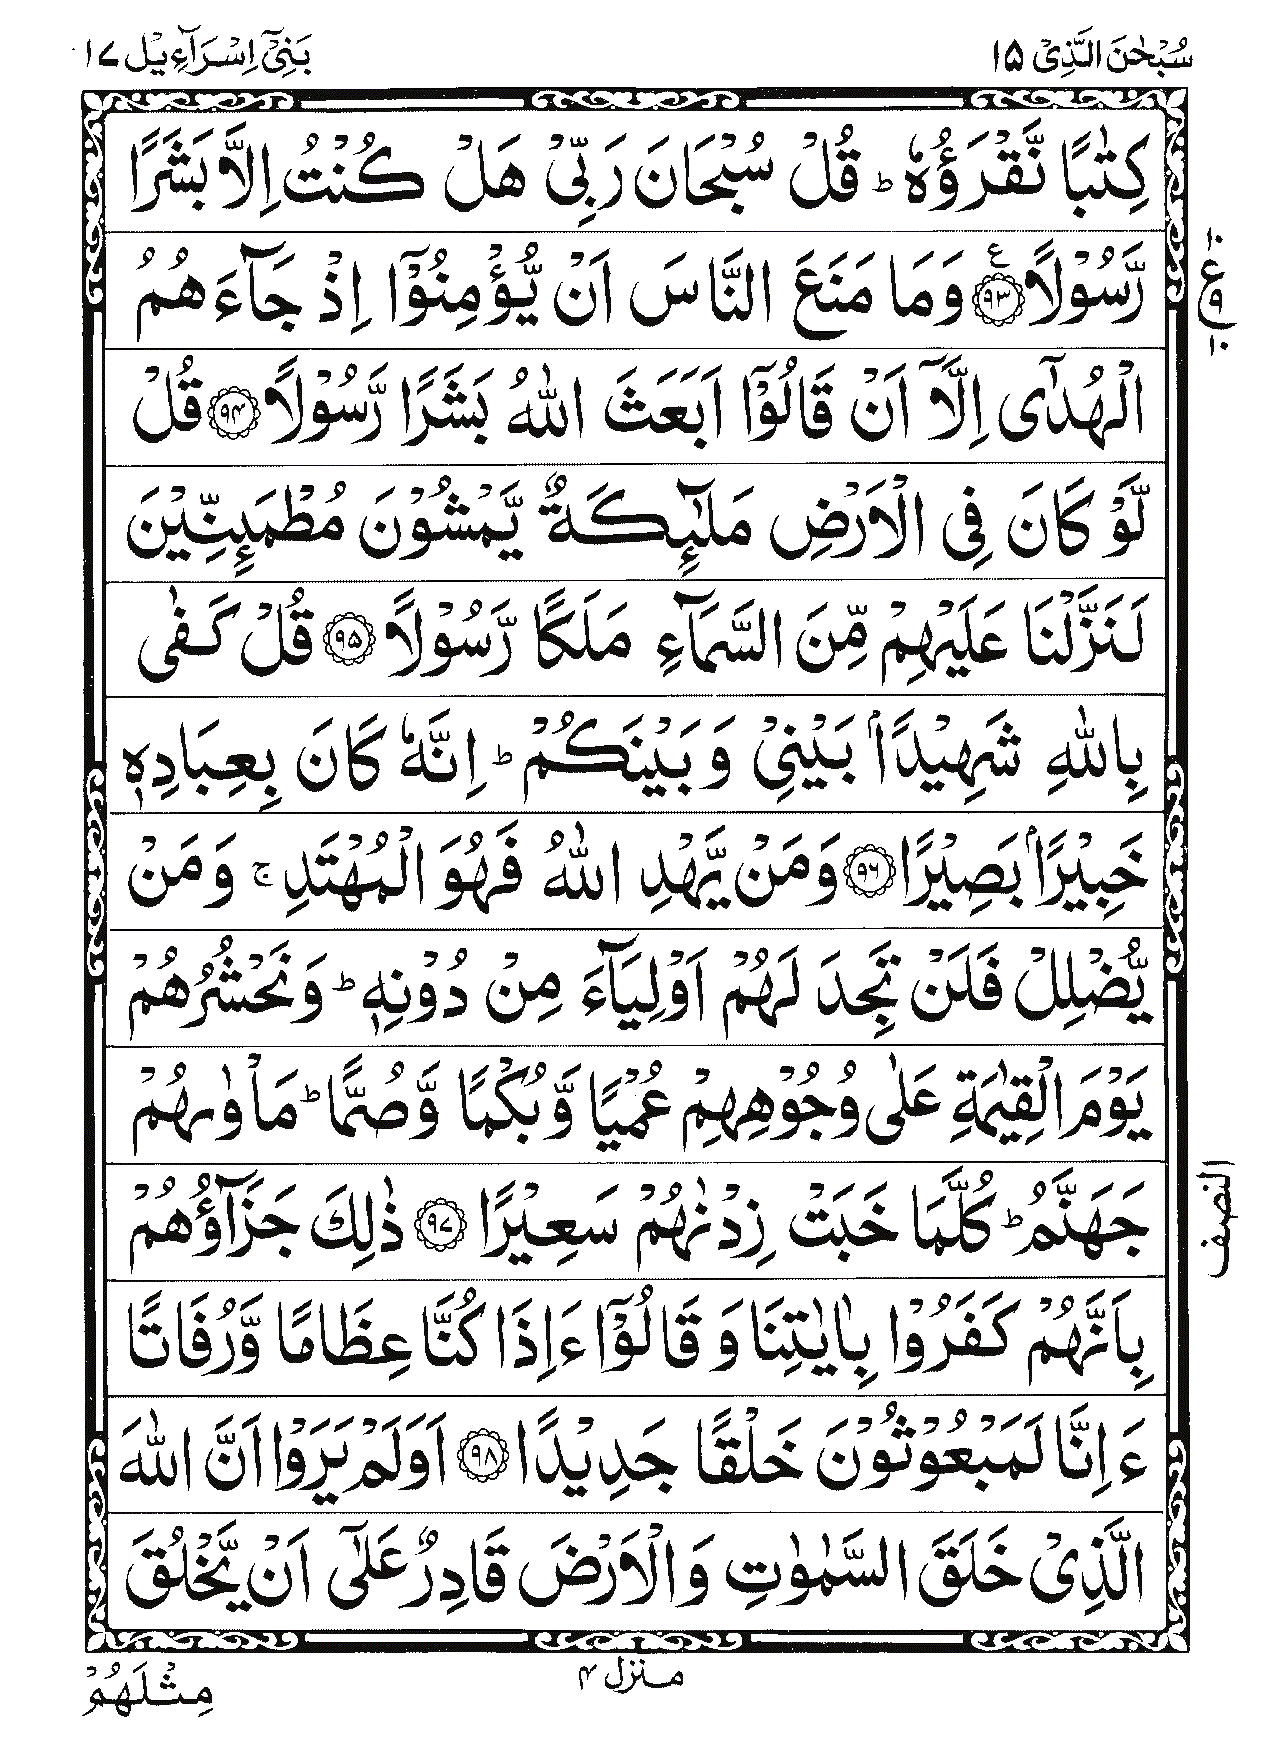 سُبْحٰنَ الَّذِیْۤ ۱۵
بَنِیْۤ اِسْرَآءِیْل ۱۷
كِتٰبًا نَّقْرَؤُهٗ ؕ قُلْ سُبْحَانَ رَبِّیْ هَلْ كُنْتُ اِلَّا بَشَرًا
رَّسُوْلًا ۹۳ ع وَمَا مَنَعَ النَّاسَ اَنْ یُّؤْمِنُوْۤا اِذْ جَآءَهُمُ
۱۰ ع ۹ ۱۰
الْهُدٰۤی اِلَّاۤ اَنْ قَالُوْۤا اَبَعَثَ اللّٰهُ بَشَرًا رَّسُوْلًا ۹۴ قُلْ
لَّوْ كَانَ فِی الْاَرْضِ مَلٰٓىِٕكَةٌ یَّمْشُوْنَ مُطْمَىِٕنِّیْنَ
لَنَزَّلْنَا عَلَیْهِمْ مِّنَ السَّمَآءِ مَلَكًا رَّسُوْلًا ۹۵ قُلْ كَفٰی
بِاللّٰهِ شَهِیْدًۢا بَیْنِیْ وَبَیْنَكُمْ ؕ اِنَّهٗ كَانَ بِعِبَادِهٖ
خَبِیْرًۢا بَصِیْرًا ۹۶ وَمَنْ یَّهْدِ اللّٰهُ فَهُوَ الْمُهْتَدِ ۚ وَمَنْ
یُّضْلِلْ فَلَنْ تَجِدَ لَهُمْ اَوْلِیَآءَ مِنْ دُوْنِهٖ ؕ وَنَحْشُرُهُمْ
یَوْمَ الْقِیٰمَةِ عَلٰی وُجُوْهِهِمْ عُمْیًا وَّبُكْمًا وَّصُمًّا ؕ مَاْوٰىهُمْ
جَهَنَّمُ ؕ كُلَّمَا خَبَتْ زِدْنٰهُمْ سَعِیْرًا ۹۷ ذٰلِكَ جَزَآؤُهُمْ
النصف
بِاَنَّهُمْ كَفَرُوْا بِاٰیٰتِنَا وَقَالُوْۤا ءَاِذَا كُنَّا عِظَامًا وَّرُفَاتًا
ءَاِنَّا لَمَبْعُوْثُوْنَ خَلْقًا جَدِیْدًا ۹۸ اَوَلَمْ یَرَوْا اَنَّ اللّٰهَ
الَّذِیْ خَلَقَ السَّمٰوٰتِ وَالْاَرْضَ قَادِرٌ عَلٰۤی اَنْ یَّخْلُقَ
منزل ۴
مِثْلَهُمْ